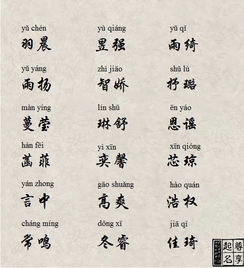 yǔ chén yù qiáng yǔ qǐ
羽晨 昱强 雨绮
yǔ yáng zhì jiāo shū lù
雨扬 智娇 抒璐
màn yíng lín shū ēn yáo
蔓莹 琳舒 恩谣
hán fēi yì xīn xīn qióng
菡菲 奕馨 芯琼
yán zhong gāo shuǎng hào quán
言中 高爽 浩权
cháng míng dōng xī jiā qí
常鸣 冬睿 佳琦
起名